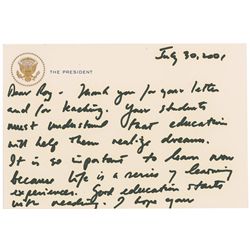 July 30, 2001
THE PRESIDENT
Dear Roy - Thank you for your letter
and for teaching. Your students
must understand that education
will help them realize dreams.
It is so important to learn now
because life is a series of learning
experiences. Good education starts
with reading. I hope your